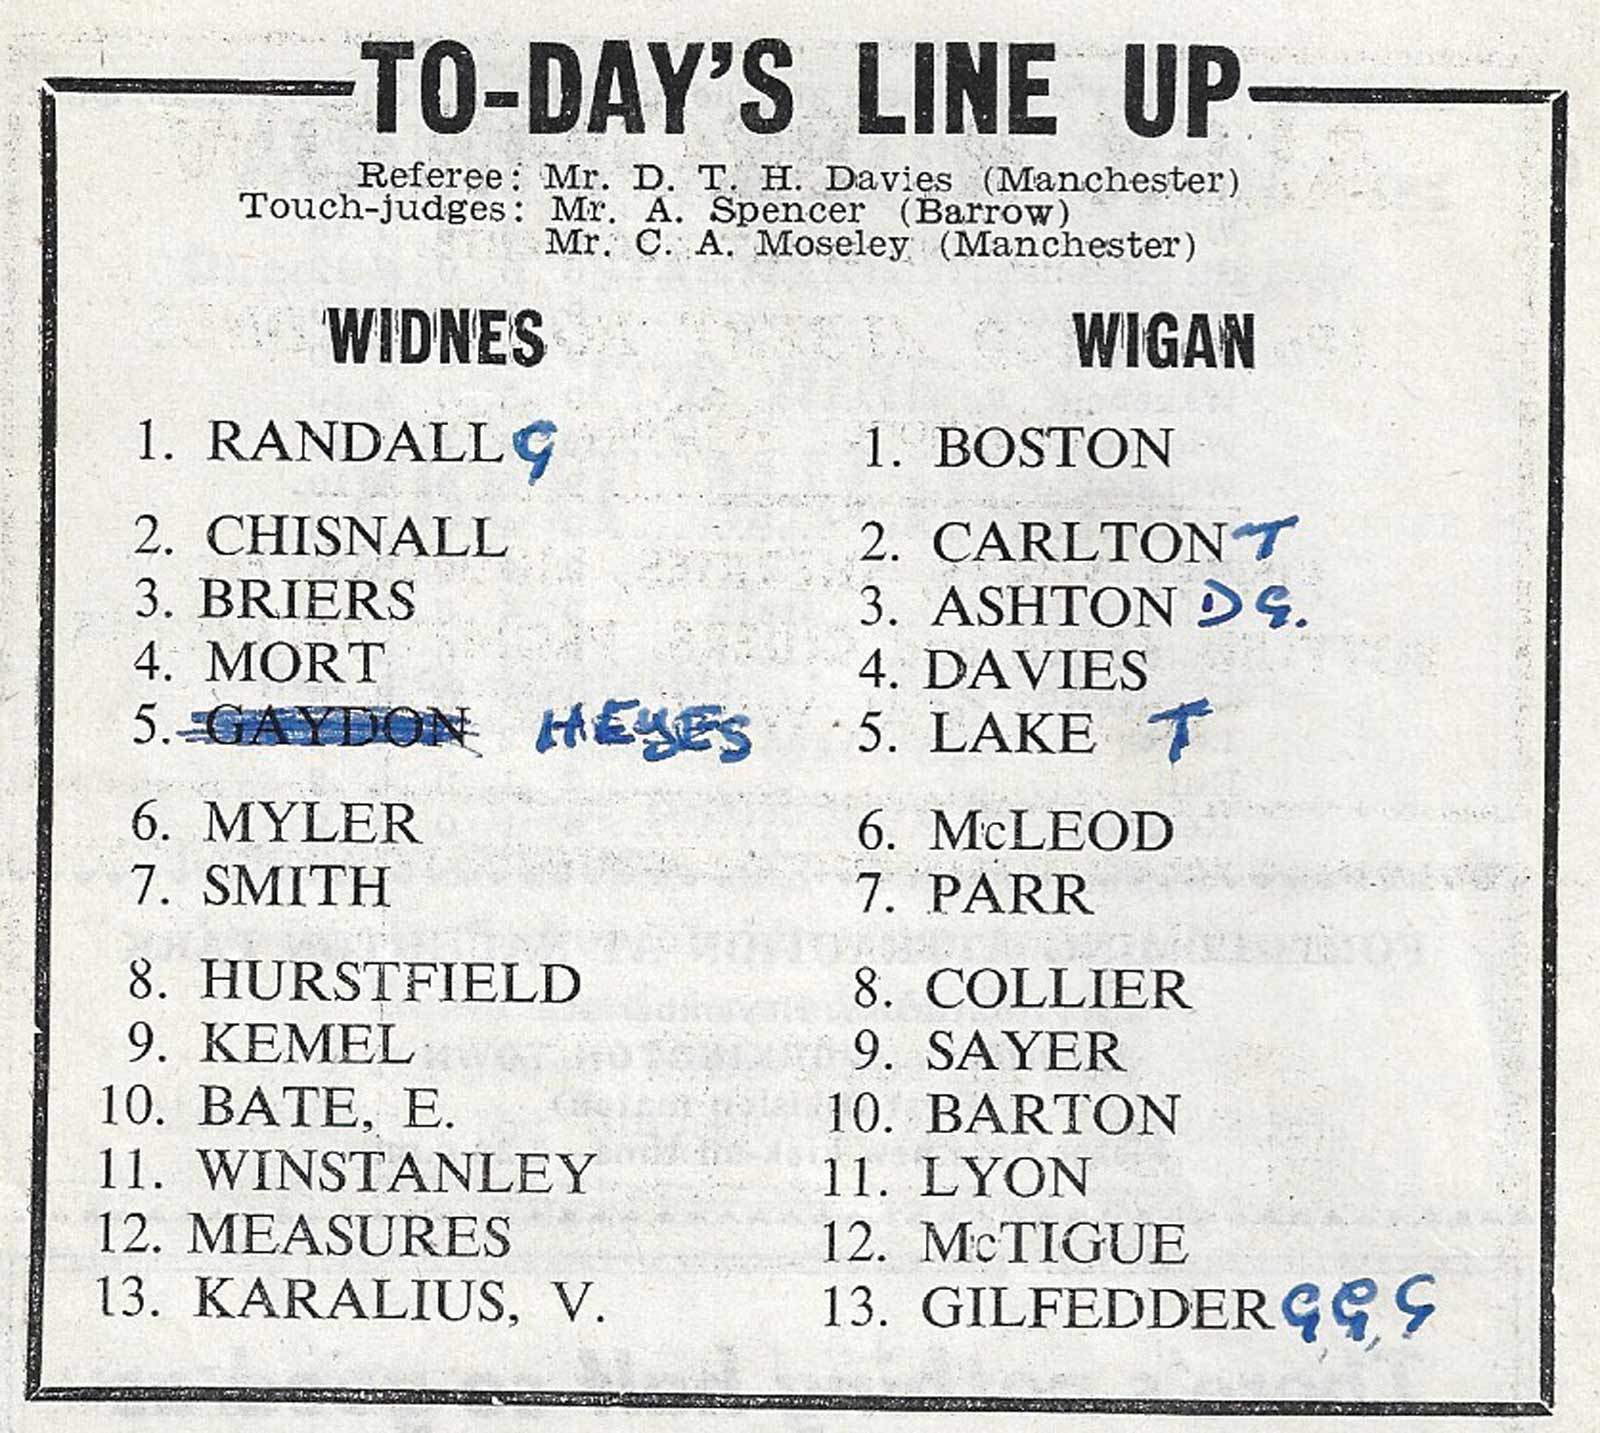 TO-DAY'S LINE UP
Referee: Mr. D. T. H. Davies (Manchester)
Touch-judges: Mr. A. Spencer (Barrow)
Mr. C. A. Moseley (Manchester)
WIDNES
1. RANDALL G
2. CHISNALL
3. BRIERS
4. MORT
5. GAYDON HEYES
6. MYLER
7. SMITH
8. HURSTFIELD
9. KEMEL
10. BATE, E.
11. WINSTANLEY
12. MEASURES
13. KARALIUS, V.
WIGAN
1. BOSTON
2. CARLTON T
3. ASHTON D G.
4. DAVIES
5. LAKE T
6. McLEOD
7. PARR
8. COLLIER
9. SAYER
10. BARTON
11. LYON
12. McTIGUE
13. GILFEDDER G, G, G